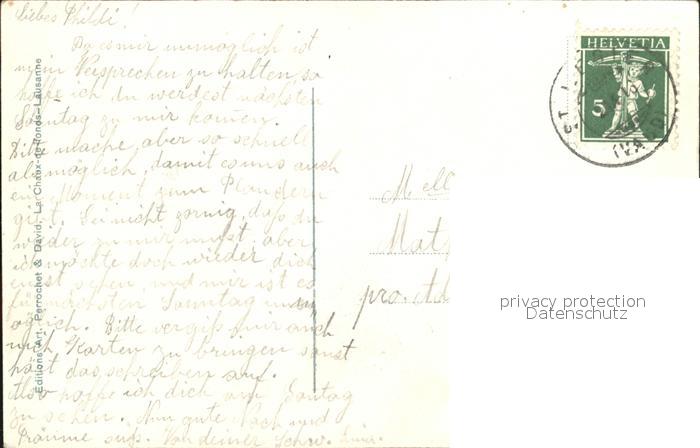 Liebes Thildi!
Da es mir unmöglich ist
mein Versprechen zu halten, so
hoffe ich du werdest nächsten
Sonntag zu mir komen.
Bitte mache, aber so schnell
als möglich, damit es uns auch
ein Moment zum Plaudern
gibt. Sei nicht zornig, daß du
wieder zu mir mußt, aber
ich möchte doch wieder dich
einst sehen, und mir ist es
am nächsten Sonntag unm
öglich. Bitte vergiß mir auch
nich Karten zu bringen sonst
hört das schreiben auf.
Also hoffe ich dich am Sontag
zu sehen. Nun gute Nach und
Träume süß. Von deiner Schw.
Editions Art. Perrochet & David, La Chaux-de-fonds-Lausanne
HELVETIA
5
Mell
Mat
pro. Ad
privacy protection
Datenschutz